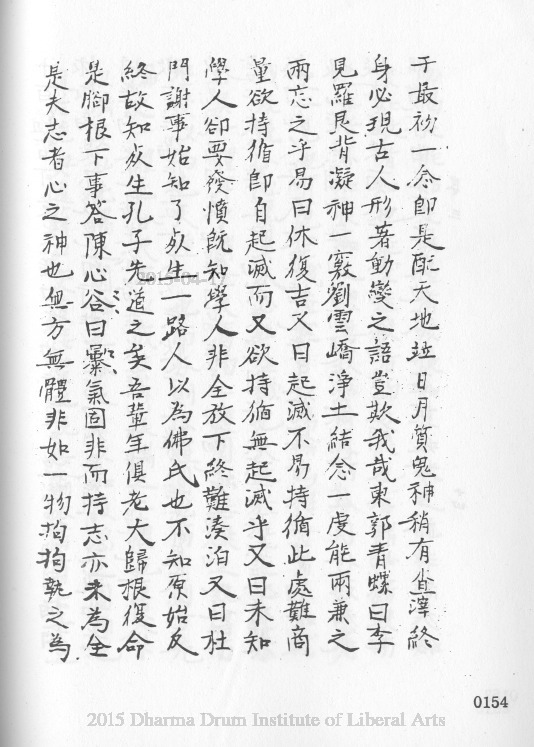 于最初一念即是配天地竝日月質鬼神稍有查滓終
身必現古人形著動變之語豈欺我哉東郭青螺曰李
見羅艮背凝神一竅劉雲嶠淨土結念一處能兩兼之
兩忘之乎易曰休復吉又曰起滅不易持循此處難商
量欲持循即自起滅而又欲持循無起滅乎又曰未知
學人卻要發憤既知學人非全放下終難湊泊又曰杜
門謝事始知了死生一路人以為佛氏也不知原始反
終故知死生孔子先道之矣吾輩年俱老大歸根復命
是腳根下事答陳心谷曰暴氣固非而持志亦未為全
是夫志者心之神也無方無體非如一物拘拘執之為
0154
2015-04-17
2015 Dharma Drum Institute of Liberal Arts